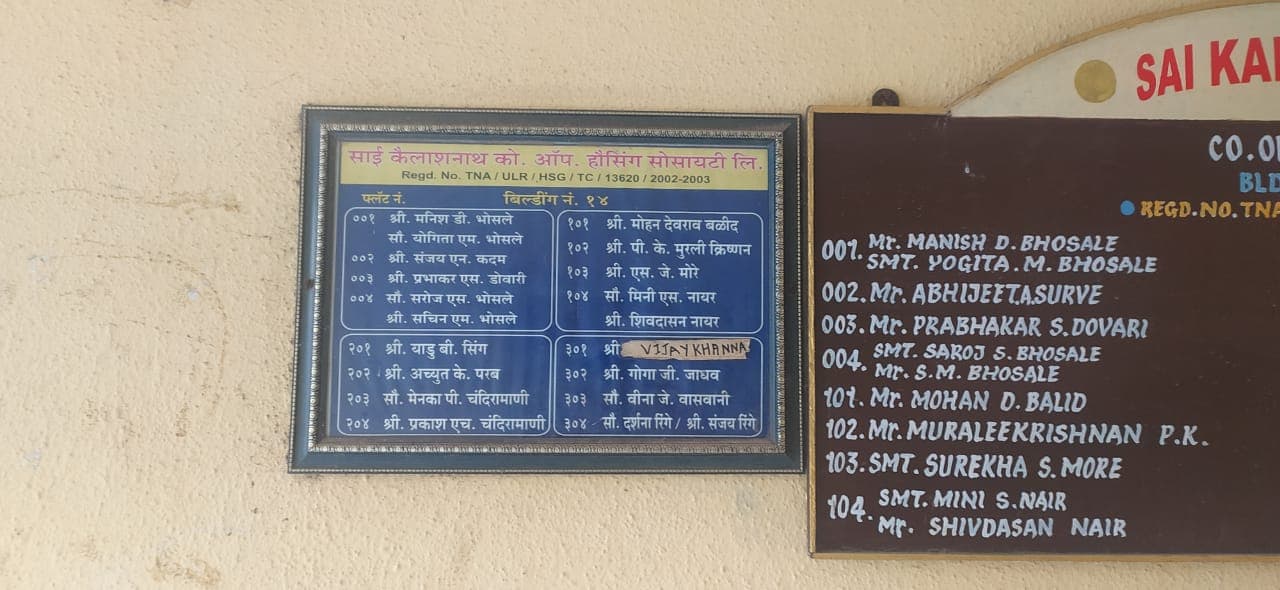 साई कैलाशनाथ को. ऑप. हौसिंग सोसायटी लि.
Regd. No. TNA / ULR / HSG / TC / 13620 / 2002-2003
फ्लॅट नं. बिल्डींग नं. १४
००१ श्री. मनिश डी. भोसले
सौ. योगिता एम. भोसले
००२ श्री. संजय एन. कदम
००३ श्री. प्रभाकर एस. डोवारी
००४ सौ. सरोज एस. भोसले
श्री. सचिन एम. भोसले
१०१ श्री. मोहन देवराव बळीद
१०२ श्री. पी. के. मुरली क्रिष्णन
१०३ श्री. एस. जे. मोरे
१०४ सौ. मिनी एस. नायर
श्री. शिवदासन नायर
२०१ श्री. यादु बी. सिंग
२०२ श्री. अच्युत के. परब
२०३ सौ. मेनका पी. चंदिरामाणी
२०४ श्री. प्रकाश एच. चंदिरामाणी
३०१ श्री VIJAY KHANNA
३०२ श्री. गोगा जी. जाधव
३०३ सौ. वीना जे. वासवानी
३०४ सौ. दर्शना रिंगे / श्री. संजय रिंगे
SAI KAI
CO.O
BLD
REGD.NO.TNA
001. Mr. MANISH D. BHOSALE
SMT. YOGITA.M. BHOSALE
002. Mr. ABHIJEET.A.SURVE
003. Mr. PRABHAKAR S.DOVARI
004. SMT. SAROJ S. BHOSALE
Mr. S.M. BHOSALE
101. Mr. MOHAN D.BALID
102. Mr. MURALEEKRISHNAN P.K.
103. SMT. SUREKHA S.MORE
104. SMT. MINI S.NAIR
Mr. SHIVDASAN NAIR